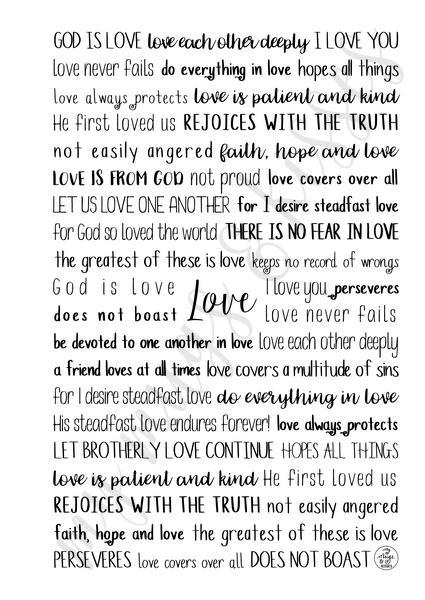 GOD IS LOVE love each other deeply I LOVE YOU
love never fails do everything in love hopes all things
love always protects love is patient and kind
He first loved us REJOICES WITH THE TRUTH
not easily angered faith, hope and love
LOVE IS FROM GOD not proud love covers over all
LET US LOVE ONE ANOTHER for I desire steadfast love
for God so loved the world THERE IS NO FEAR IN LOVE
the greatest of these is love keeps no record of wrongs
God is love I love you perseveres
Love
does not boast love never fails
be devoted to one another in love love each other deeply
a friend loves at all times love covers a multitude of sins
for I desire steadfast love do everything in love
His steadfast love endures forever! love always protects
LET BROTHERLY LOVE CONTINUE HOPES ALL THINGS
love is patient and kind He first loved us
REJOICES WITH THE TRUTH not easily angered
faith, hope and love the greatest of these is love
PERSEVERES love covers over all DOES NOT BOAST